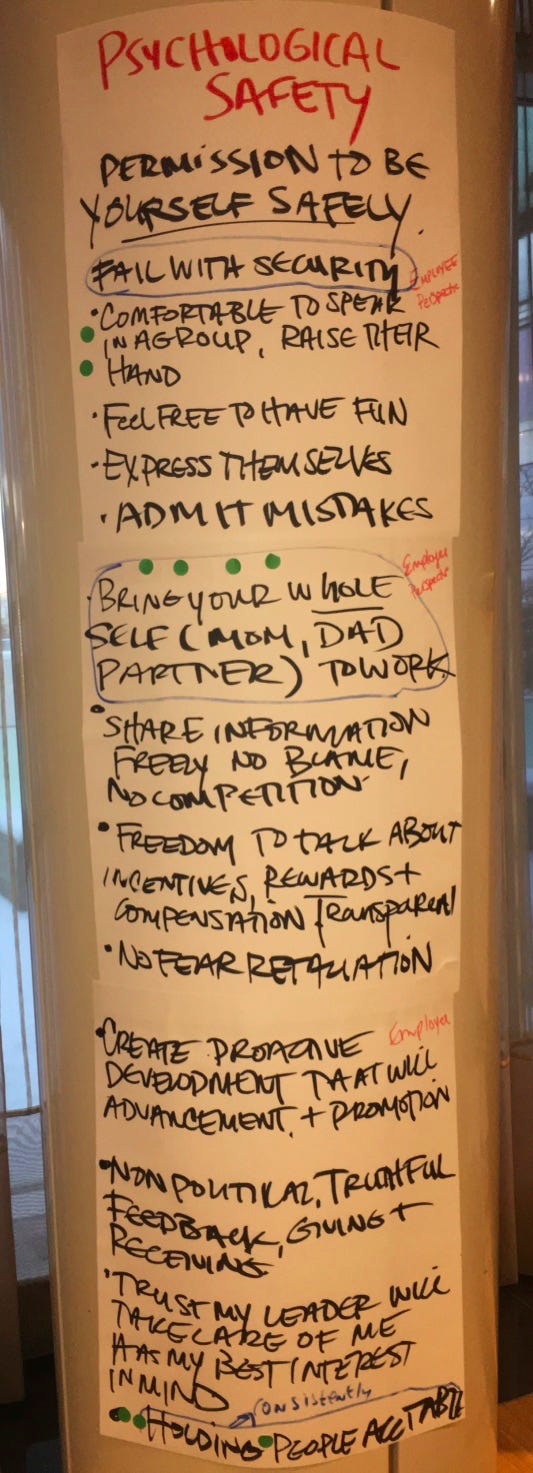 PSYCHOLOGICAL
SAFETY
PERMISSION TO BE
YOURSELF SAFELY.
FAIL WITH SECURITY
EMPLOYEE
Perspective
• COMFORTABLE TO SPEAK
IN A GROUP, RAISE THEIR
HAND
• Feel FREE TO HAVE FUN
• EXPRESS THEMSELVES
• ADMIT MISTAKES
Employee
Perspective
• BRING YOUR WHOLE
SELF (MOM, DAD
PARTNER) TO WORK
• SHARE INFORMATION
FREELY NO BLAME,
NO COMPETITION
• FREEDOM TO TALK ABOUT
INCENTIVES, REWARDS +
COMPENSATION Transparent
• NO FEAR RETALIATION
Employer
• CREATE PROACTIVE
DEVELOPMENT THAT WILL
ADVANCEMENT + PROMOTION
• NON POLITIKAL, TRUTHFUL
FEEDBACK, GIVING +
RECEIVING
• TRUST MY LEADER WILL
TAKE CARE OF ME
HAS MY BEST INTEREST
IN MIND
CONSISTENTLY
• HOLDING PEOPLE ACCTABLE